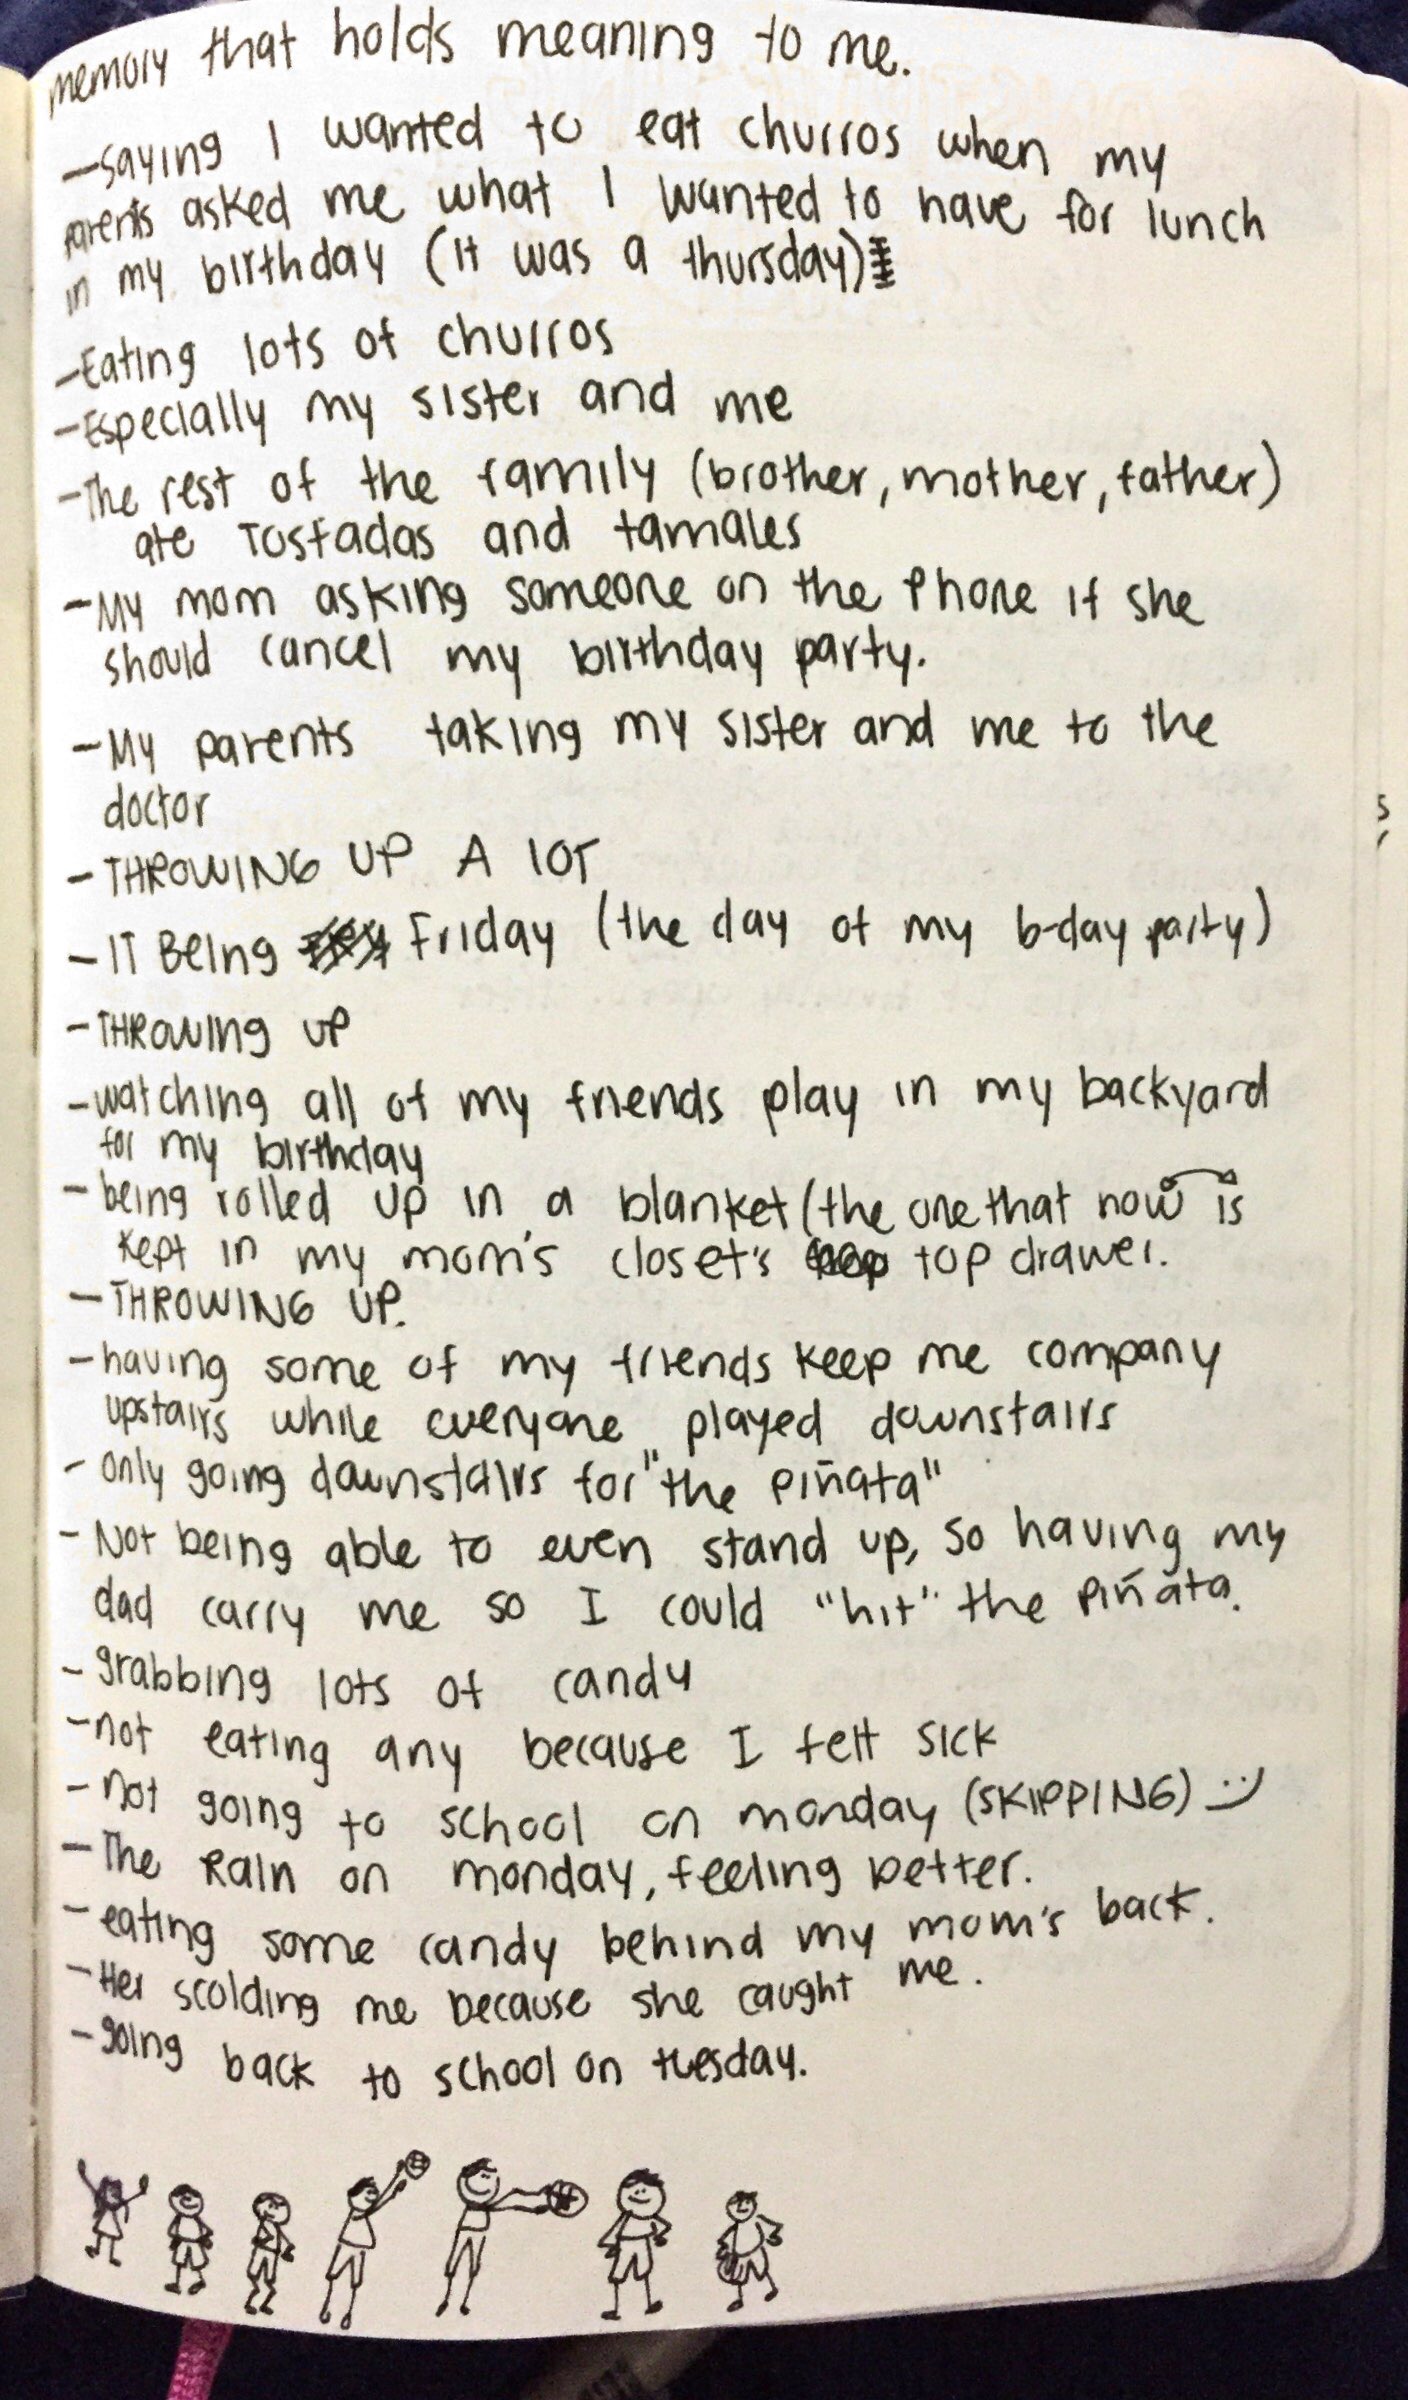 memory that holds meaning to me.
- saying I wanted to eat churros when my
parents asked me what I wanted to have for lunch
in my birthday (it was a thursday)
- Eating lots of churros
- Especially my sister and me
- The rest of the family (brother, mother, father)
ate Tostadas and tamales
- My mom asking someone on the Phone if she
should cancel my birthday party.
- My parents taking my sister and me to the
doctor
- THROWING UP A lOT
- IT Being Friday (the day of my b-day party)
- THROWing UP
- watching all of my friends play in my backyard
for my birthday
- being rolled up in a blanket (the one that now is
kept in my mom's closet's top drawer.
- THROWING UP.
- having some of my friends keep me company
upstairs while everyone played downstairs
- only going downstairs for "the piñata"
- Not being able to even stand up, so having my
dad carry me so I could "hit" the piñata.
- grabbing lots of candy
- not eating any because I felt sick
- not going to school on monday (SKIPPING) :)
- The Rain on monday, feeling better.
- eating some candy behind my mom's back.
- Her scolding me because she caught me.
- going back to school on tuesday.